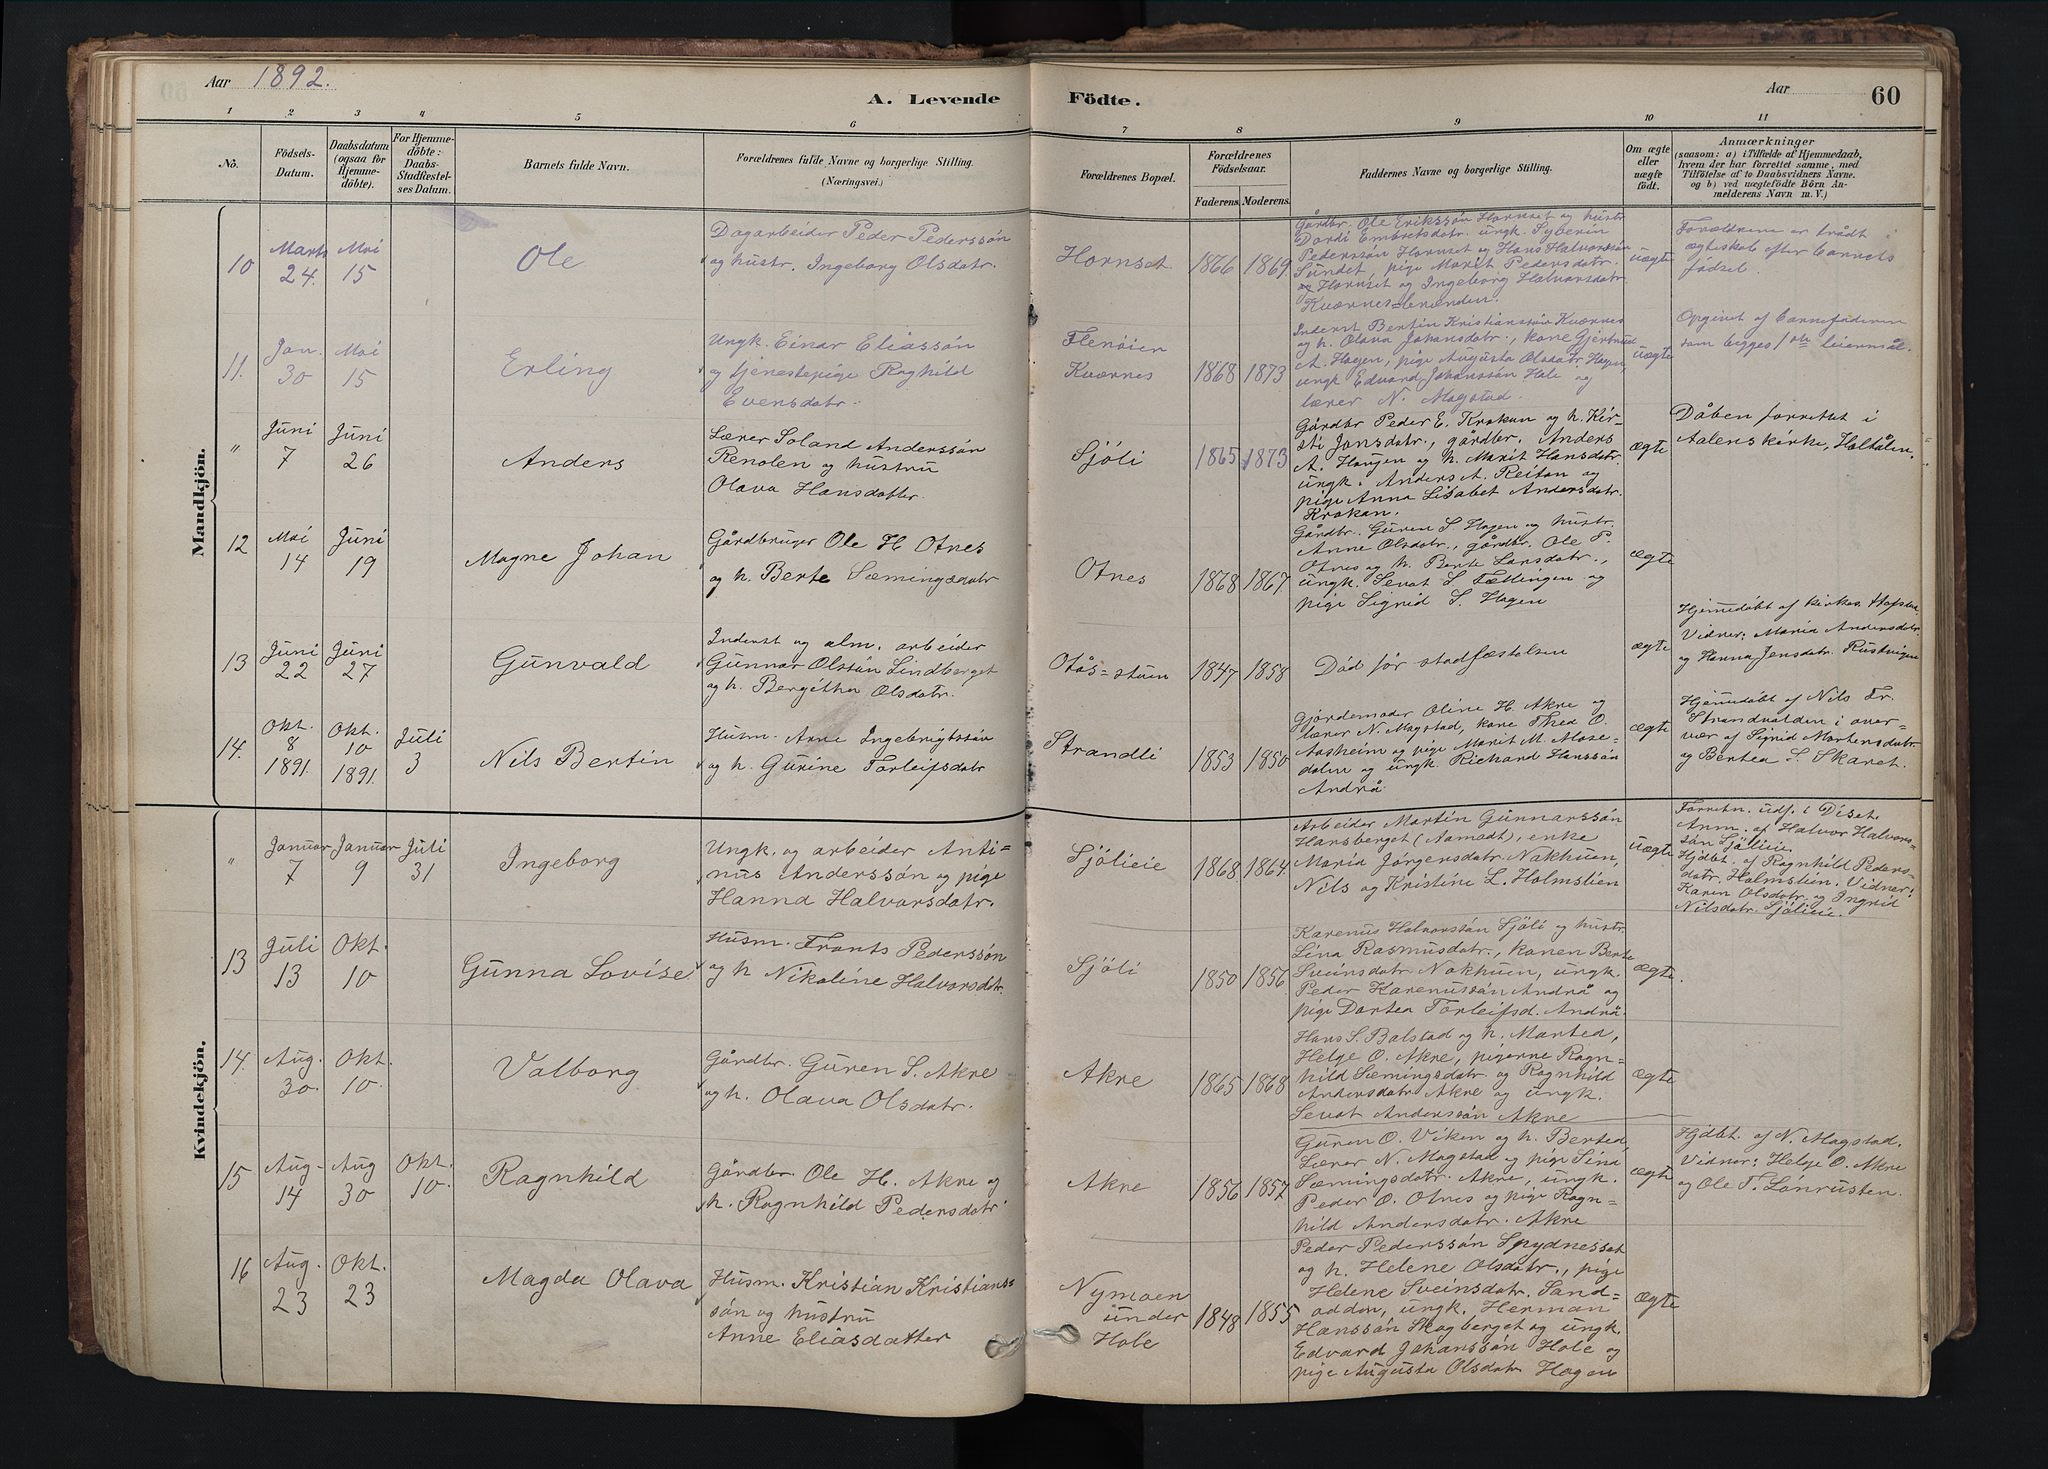 Aar 1892.
A. Levende
Födte.
Aar
60
1 2 3 4 5 6 7 8 9 10 11
No.
Födsels-
Datum.
Daabsdatum
(ogsaa for
Hjemme-
döbte).
For Hjemme-
döbte:
Daabs-
Stadfæstel-
ses Datum.
Barnets fulde Navn.
Forældrenes fulde Navne og borgerlige Stilling.
(Næringsvei.)
Forældrenes Bopæl.
Forældrenes
Födselsaar.
Faderens. Moderens.
Faddernes Navne og borgerlige Stilling.
Om ægte
eller
uægte
födt.
Anmærkninger
(saasom: a) i Tilfælde af Hjemmedaab,
hvem der har forrettet samme, med
Tilföielse af to Daabsvidners Navne.
og b) ved uægtefödte Börn An-
melderens Navn m. V.)
Mandkjön.
10
Marts
24.
Mai
15
Ole
Dagarbeider Peder Pederssön
og hustr. Ingeborg Olsdatr.
Hornset
1866 1869
Gårdbr. Ole Erikssön Hornset og hustr.
Dordi Embretsdatr. ungk. Syverin
Pederssön Hornset og Hans Halvorssön
Sundet, pige Marit Pedersdatr.
Hornset og Ingeborg Halvorsdatr.
Kværnes=
uægte
Forældrene er trådt i
ægteskab efter barnets
födsel.
11.
Jan.
30
Mai
15
Erling
Ungk. Einar Eliassön
og tjenestepige Raghild
Evensdatr.
Flenöien
Kværnes
1868 1873
Inderst Bertin Kristianssön Kværnes
og h. Olava Johansdatr., kone Gjertrud
A. Hagen, pige Augusta Olsdatr. Hagen,
ungk. Edvard Johanssön Hole og
lærer N. Magstad.
uægte
Opgivet af barnefaderen
som begges 1ste leiermål.
"
Juni
7
Juni
26
Anders
Lærer Soland Anderssön
Renolen og hustru
Olava Hansdatter.
Sjöli
1865 1873
Gårdbr Peder E. Krokan og h. Kir-
sti Jonsdatr., gårdbr. Anders
A. Haugen og h. Marit Hansdatr.
ungk. Anders A. Reitan og
pige Anna Lisabet Andersdatr.
Krokan.
ægte
Dåben forrettet i
Aalens kirke, Holtålen.
12
Mai
14
Juni
19
Magne Johan
Gårdbruger Ole H. Otnes
og h. Berte Sæmingsdatr
Otnes
1868 1867
Gårdbr. Guren S. Hagen og hustr.
Anne Olsdatr., gårdbr. Ole P.
Otnes og h. Berte Larsdatr.,
ungk. Sevat S. Fættingen og
pige Sigrid S. Hagen
ægte
13
Juni
22
Juni
27
Gunvald
Inderst og alm. arbeider
Gunnar Olssön Lindberget
og h. Bergitha Olsdatr.
Otås=stuen
1847 1858
Död för stadfæstelsen
ægte
Hjemmedöbt af kirkes.
Vidner: Maria Andersdatr.
og Hanna Jensdatr.
14.
Okt.
8
1891.
Okt.
10
1891.
Juli
3
Nils Bertin
Husm. Arne Ingebrigtssön
og h. Gurine Torleifsdatr
Strandli
1853 1850
Gjordemoder Oline H. Akre og
lærer N. Magstad, kone Thea O.
Aasheim og pige Marit M. Mose-
dalen og ungk. Richard Hanssön
Andrå
ægte
Hjemmedöbt af Nils Fr.
Strandvolden i over-
vær af Sigrid Mortensdatr.
og Bertea S. Skaret.
Kvindekjön.
"
Januar
7
Januar
9
Juli
31
Ingeborg
Ungk. og arbeider Anti-
nus Anderssön og pige
Hanna Halvorsdatr.
Sjölieie
1868 1864.
Arbeider Martin Gunnarssön
Hansberget (Aamodt), enke
Maria Jörgensdatr. Nakhuen,
Nils og Kristine L. Holmstien
uægte
Forretn. udf. i Diset.
Anm. af Halvor Halvors-
sön Sjölieie.
Hjdbt. af Ragnhild Peders-
datr. Holmstien. Vidner:
Karen Olsdatr. og Ingrid
Nilsdatr. Sjölieie.
13
Juli
13
Okt.
10
Gunna Lovise
Husm. Frants Pederssön
og h Nikoline Halvorsdatr.
Sjöli
1850 1856
Karenus Halvorssön Sjöli og hustr.
Lina Rasmusdatr., konen Berte
Sveinsdatr Nakhuen, ungk.
Peder Karenussön Andrå og
pige Dortea Torleifsd. Andrå.
ægte.
14.
Aug.
30.
Okt.
10.
Valborg
Gårdbr. Guren S. Akre
og h. Olava Olsdatr.
Akre
1865 1868
Hans S. Balstad og h. Martea,
Helge O. Akre, pigerne Ragn-
hild Sæmingsdatr. og Ragnhild
Andersdatr Akre og ungk.
Sevat Anderssön Akre
ægte
15
Aug.
14
Aug
30
Okt.
10.
Ragnhild
Gårdbr. Ole H. Akre og
h. Ragnhild Pedersdatr
Akre
1856 1857
Guren O. Viken og h. Bertea,
Lærer N. Magstad og pige Sina
Sæmingsdatr. Akre, ungk.
Peder O. Otnes og pige Ragn-
hild Andersdatr. Akre
ægte
Hjdbt. af N. Magstad.
Vidner: Helge O. Akre
og Ole T. Lönrusten.
16
Aug.
23
Okt.
23
Magda Olava
Husm. Kristian Kristians-
sön og hustru
Anne Eliasdatter
Nymoen
under
Hole
1848 1855
Peder Pederssön Spydnesset
og h. Helene Olsdatr., pige
Helene Sveinsdatr. Sand-
odden, ungk. Herman
Hanssön Skogberget og ungk.
Edvard Johanssön Hole og
pige Augusta Olsdatr Hagen
ægte